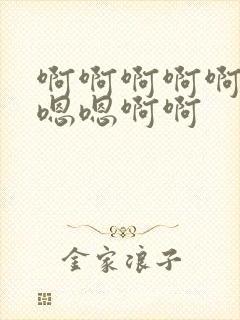 啊啊啊啊啊
嗯嗯啊啊
金家浪子